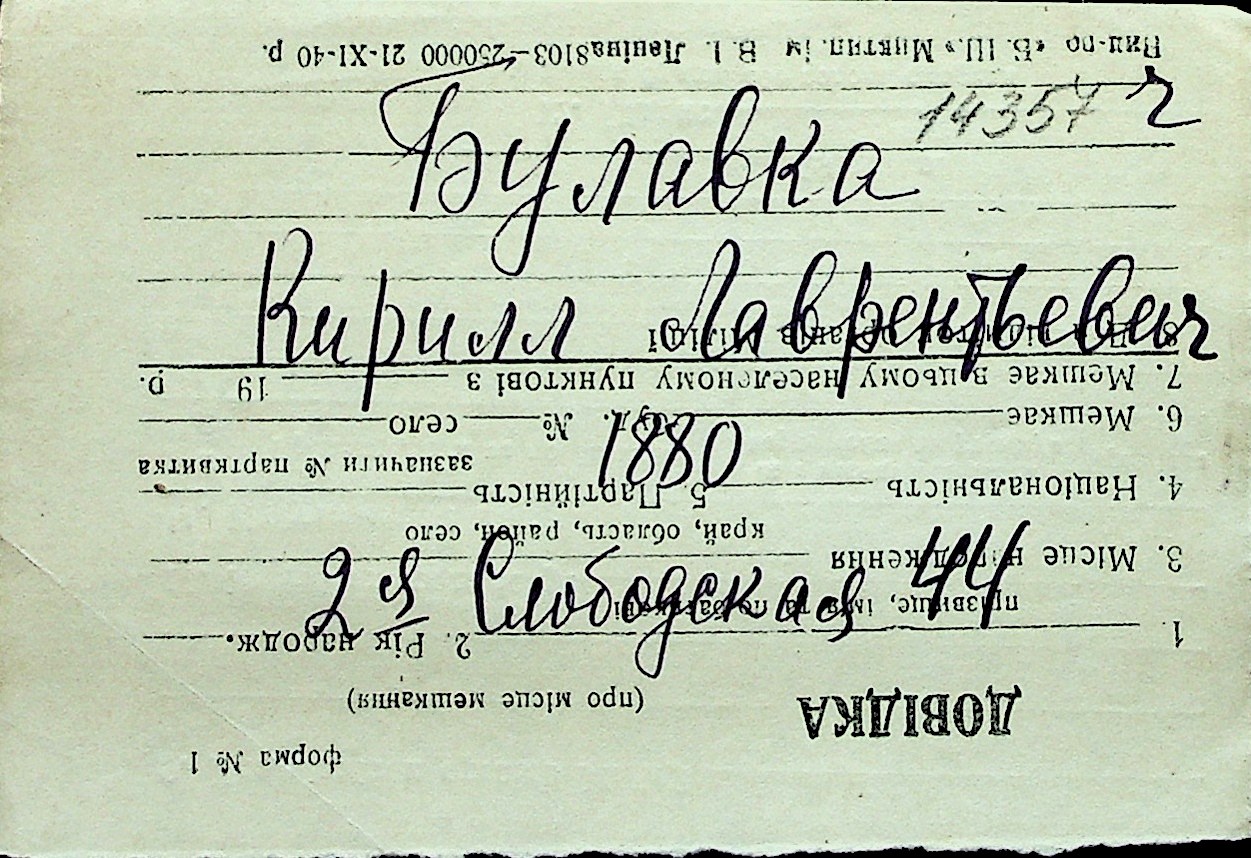 14357 ч
Булавка
Кирилл Лаврентьевич
1880
2я Слободская 44
форма № 1
ДОВІДКА
(про місце мешкання)
1. 2. Рік народж.
прізвище, ім'я та по батькові
3. Місце народження
край, область, район, село
4. Національність 5. Партійність
зазначити № партквитка
6. Мешкає вул. № село
7. Мешкає в цьому населеному пункті з 19 р.
8. міліції
"Б. Ш." Миктип. ім. В. І. Леніна 8103—250000 21-XI-40 р.